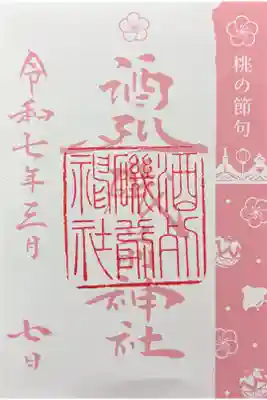 桃の節句
酒列磯前神社
酒列磯前神社
令和七年三月七日